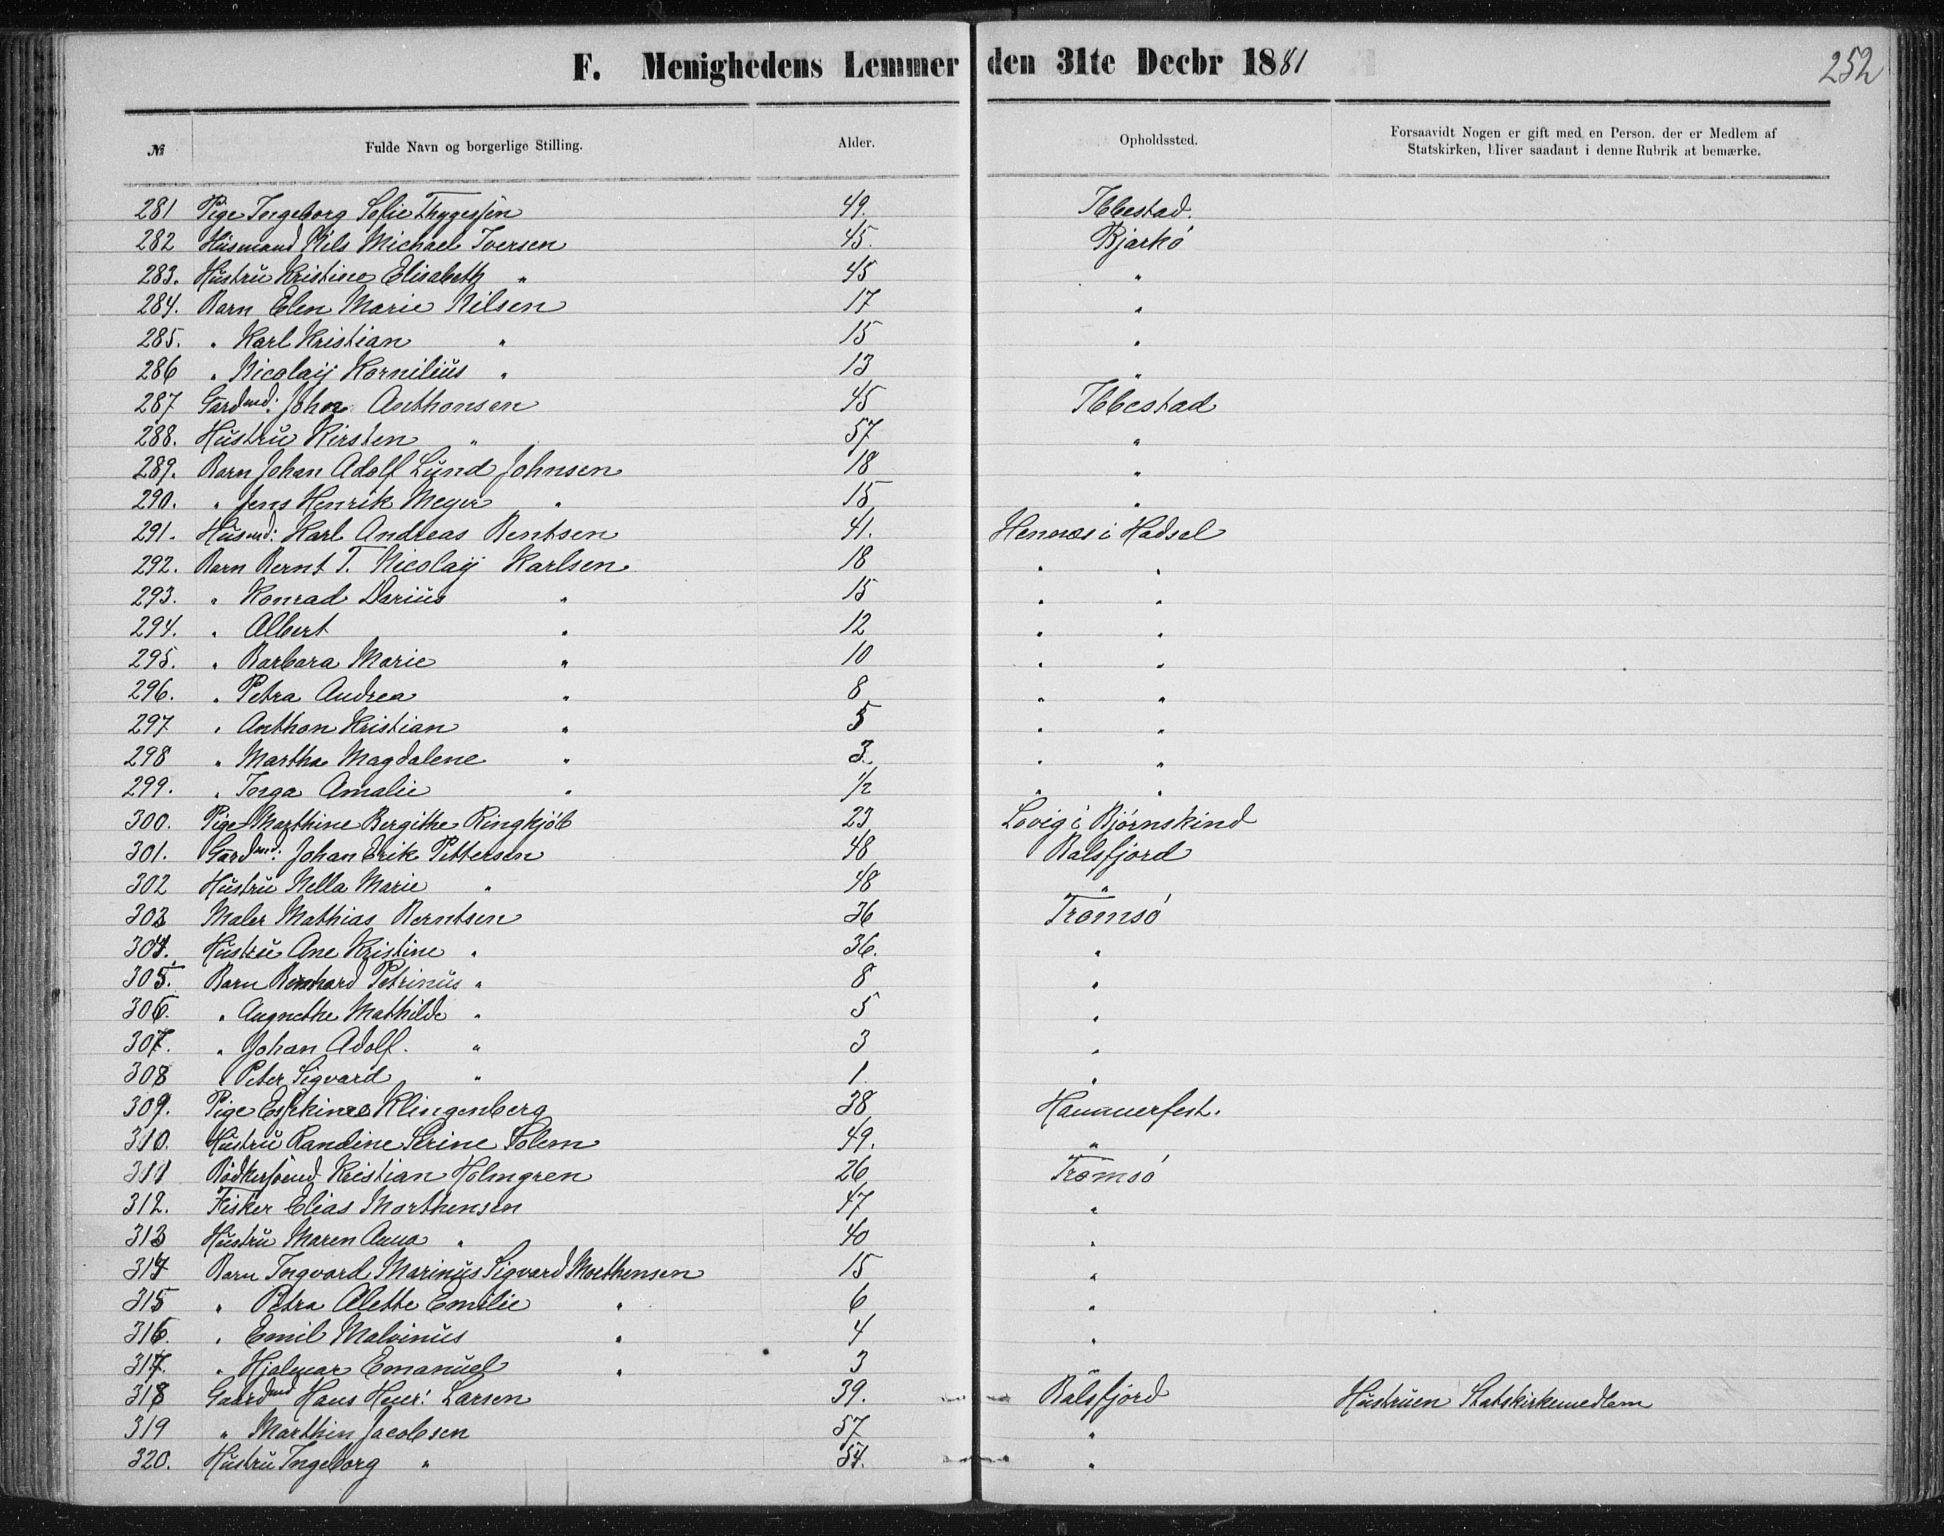 252
F. Menighedens Lemmer den 31te Decbr 1881
№ Fulde Navn og borgerlige Stilling. Alder. Opholdssted. Forsaavidt Nogen er gift med en Person, der er Medlem af
Statskirken, bliver saadant i denne Rubrik at bemærke.
281 Pige Ingeborg Sofie Thygessen 49. Ibbestad.
282 Husmand Nils Michael Iversen 45. Bjarkö
283. Hustru Kristine Elisabeth " 45 "
284. Barn Elen Marie Nilsen 17 "
285. " Karl Kristian " 15 "
286 " Nicolaij Kornilius " 13 "
287 Gard md: John Anthonsen 45 Ibbestad
288. Hustru Kirsten " 57 "
289. Barn Johan Adolf Lund Johnsen 18 "
290. " Jens Henrik Meyer " 15 "
291. Husmd: Karl Andreas Bentsen 41. Hennes i Hadsel
292. Barn Bernt T. Nicolaij Karlsen 18 " "
293. " Konrad Darius " 15 " "
294. " Albert " 12 " "
295. " Barbara Marie " 10 " "
296. " Petra Andrea " 8 " "
297 " Anthon Kristian " 5 " "
298 " Martha Magdalene " 3. " "
299. " Inga Amalie " 1/2 " "
300. Pige Marthine Bergithe Ringkjöb 23 Lovig i Bjørnskind
301. Gard md: Johan Erik Pettersen 48 Balsfjord
302 Hustru Nella Marie " 48 "
303 Maler Mathias Berntsen 36 Tromsö
304. Hustru Ane Kristine " 36. "
305. Barn Bernhard Petrinus " 8 "
306. " Augnethe Mathilde " 5 "
307. " Johan Adolf. " 3 "
308 " Peter Sigvard " 1. "
309. Pige Klingenberg 38 Hammerfest.
310. Hustru Randine Serine Solem 49. "
311 Kristian Holmgren 26 Tromsö
312. Fisker Elias Morthensen 47 "
313 Hustru Maren Anna " 40 "
314 Barn Ingvard Marinus Sigvard Morthensen 15 "
315 " Petra Alette Emilie " 6 "
316. " Emil Malvinus " 4 "
317. " Hjalmar Emanuel " 3 "
318 Gaard md Hans Henr: Larsen 39. Balsfjord Hustruen Statskirkemedlem
319 " Marthin Jacobsen 57 "
320. Hustru Ingeborg " 54. "